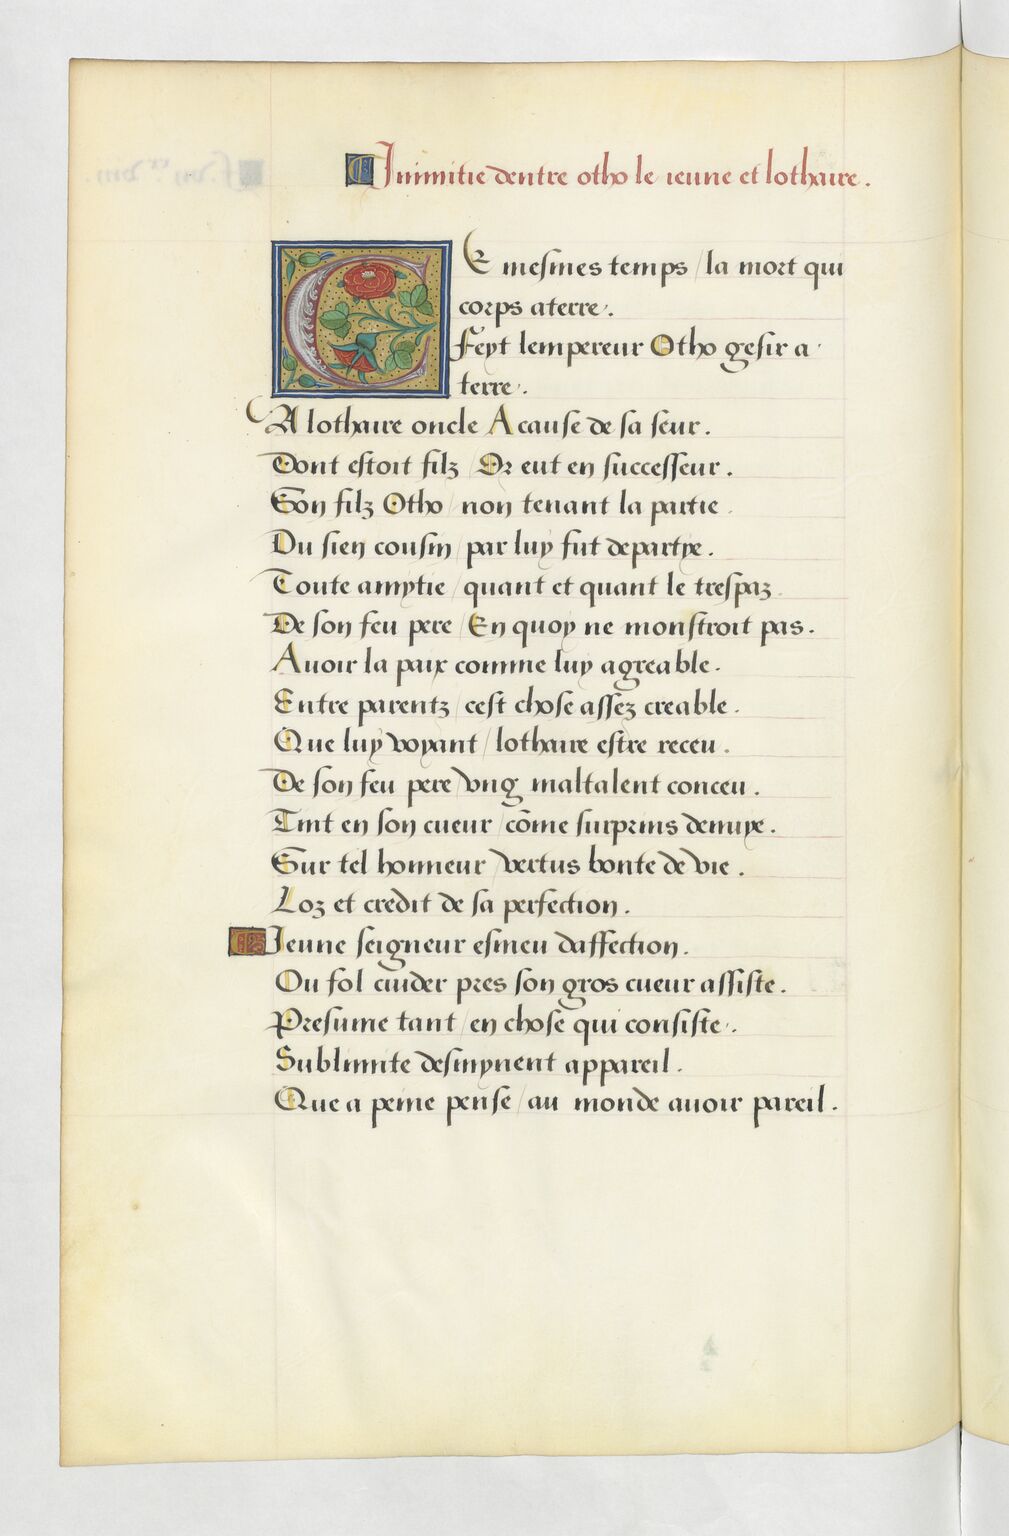 Inimitie dentre otho le ieune et lothaire.
CE mesmes temps / la mort qui
corps aterre.
Feyt lempereur Otho gesir a
terre.
A lothaire oncle A cause de sa seur.
Dont estoit filz / Or eut en successeur.
Son filz Otho / non tenant la partie.
Du sien cousin / par luy fut departye.
Toute amytie / quant et quant le trespaz.
De son feu pere / En quoy ne monstroit pas.
Auoir la paix comme luy agreable.
Entre parentz / cest chose assez creable.
Que luy voyant / lothaire estre receu.
De son feu pere vng maltalent conceu.
Tint en son cueur / cõme surprins denuye.
Sur tel honneur / vertus bonte de vie.
Loz et credit de sa perfection.
Ieune seigneur esmeu daffection.
Ou fol cuider pres son gros cueur assiste.
Presume tant / en chose qui consiste.
Sublimite desinynent appareil.
Que a peine pense / au monde auoir pareil.